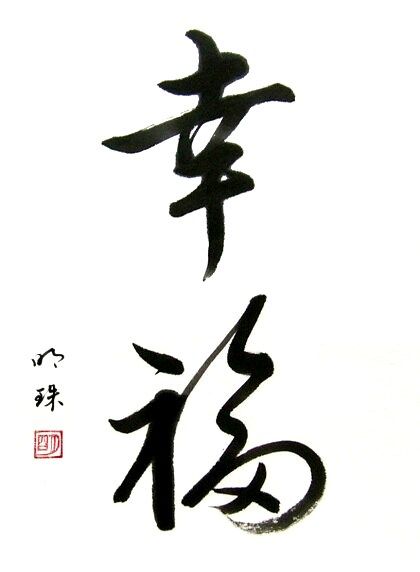 幸福
明珠